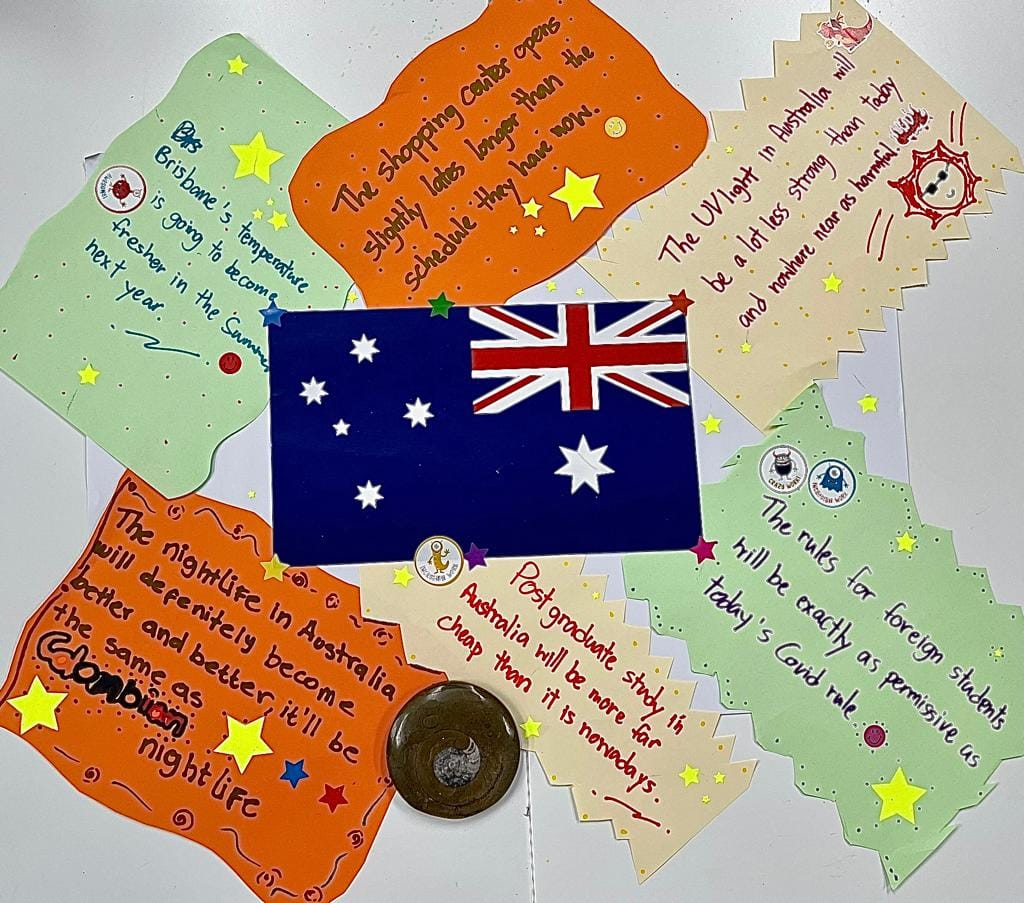 Brisbane's temperature
is going to become
fresher in the Summer
next year.
AWESOME!
The shopping center opens
slightly lates longer than the
schedule they have now.
The UV light in Australia will
be a lot less strong than today
and nowhere near as harmful
The nightlife in Australia
will defenitely become
better and better, it'll be
the same as
Colombian
nightlife
Postgraduate study in
Australia will be more far
cheap than it is nowadays.
CRAZY WORK!
The rules for foreign students
will be exactly as permissive as
today's Covid rule